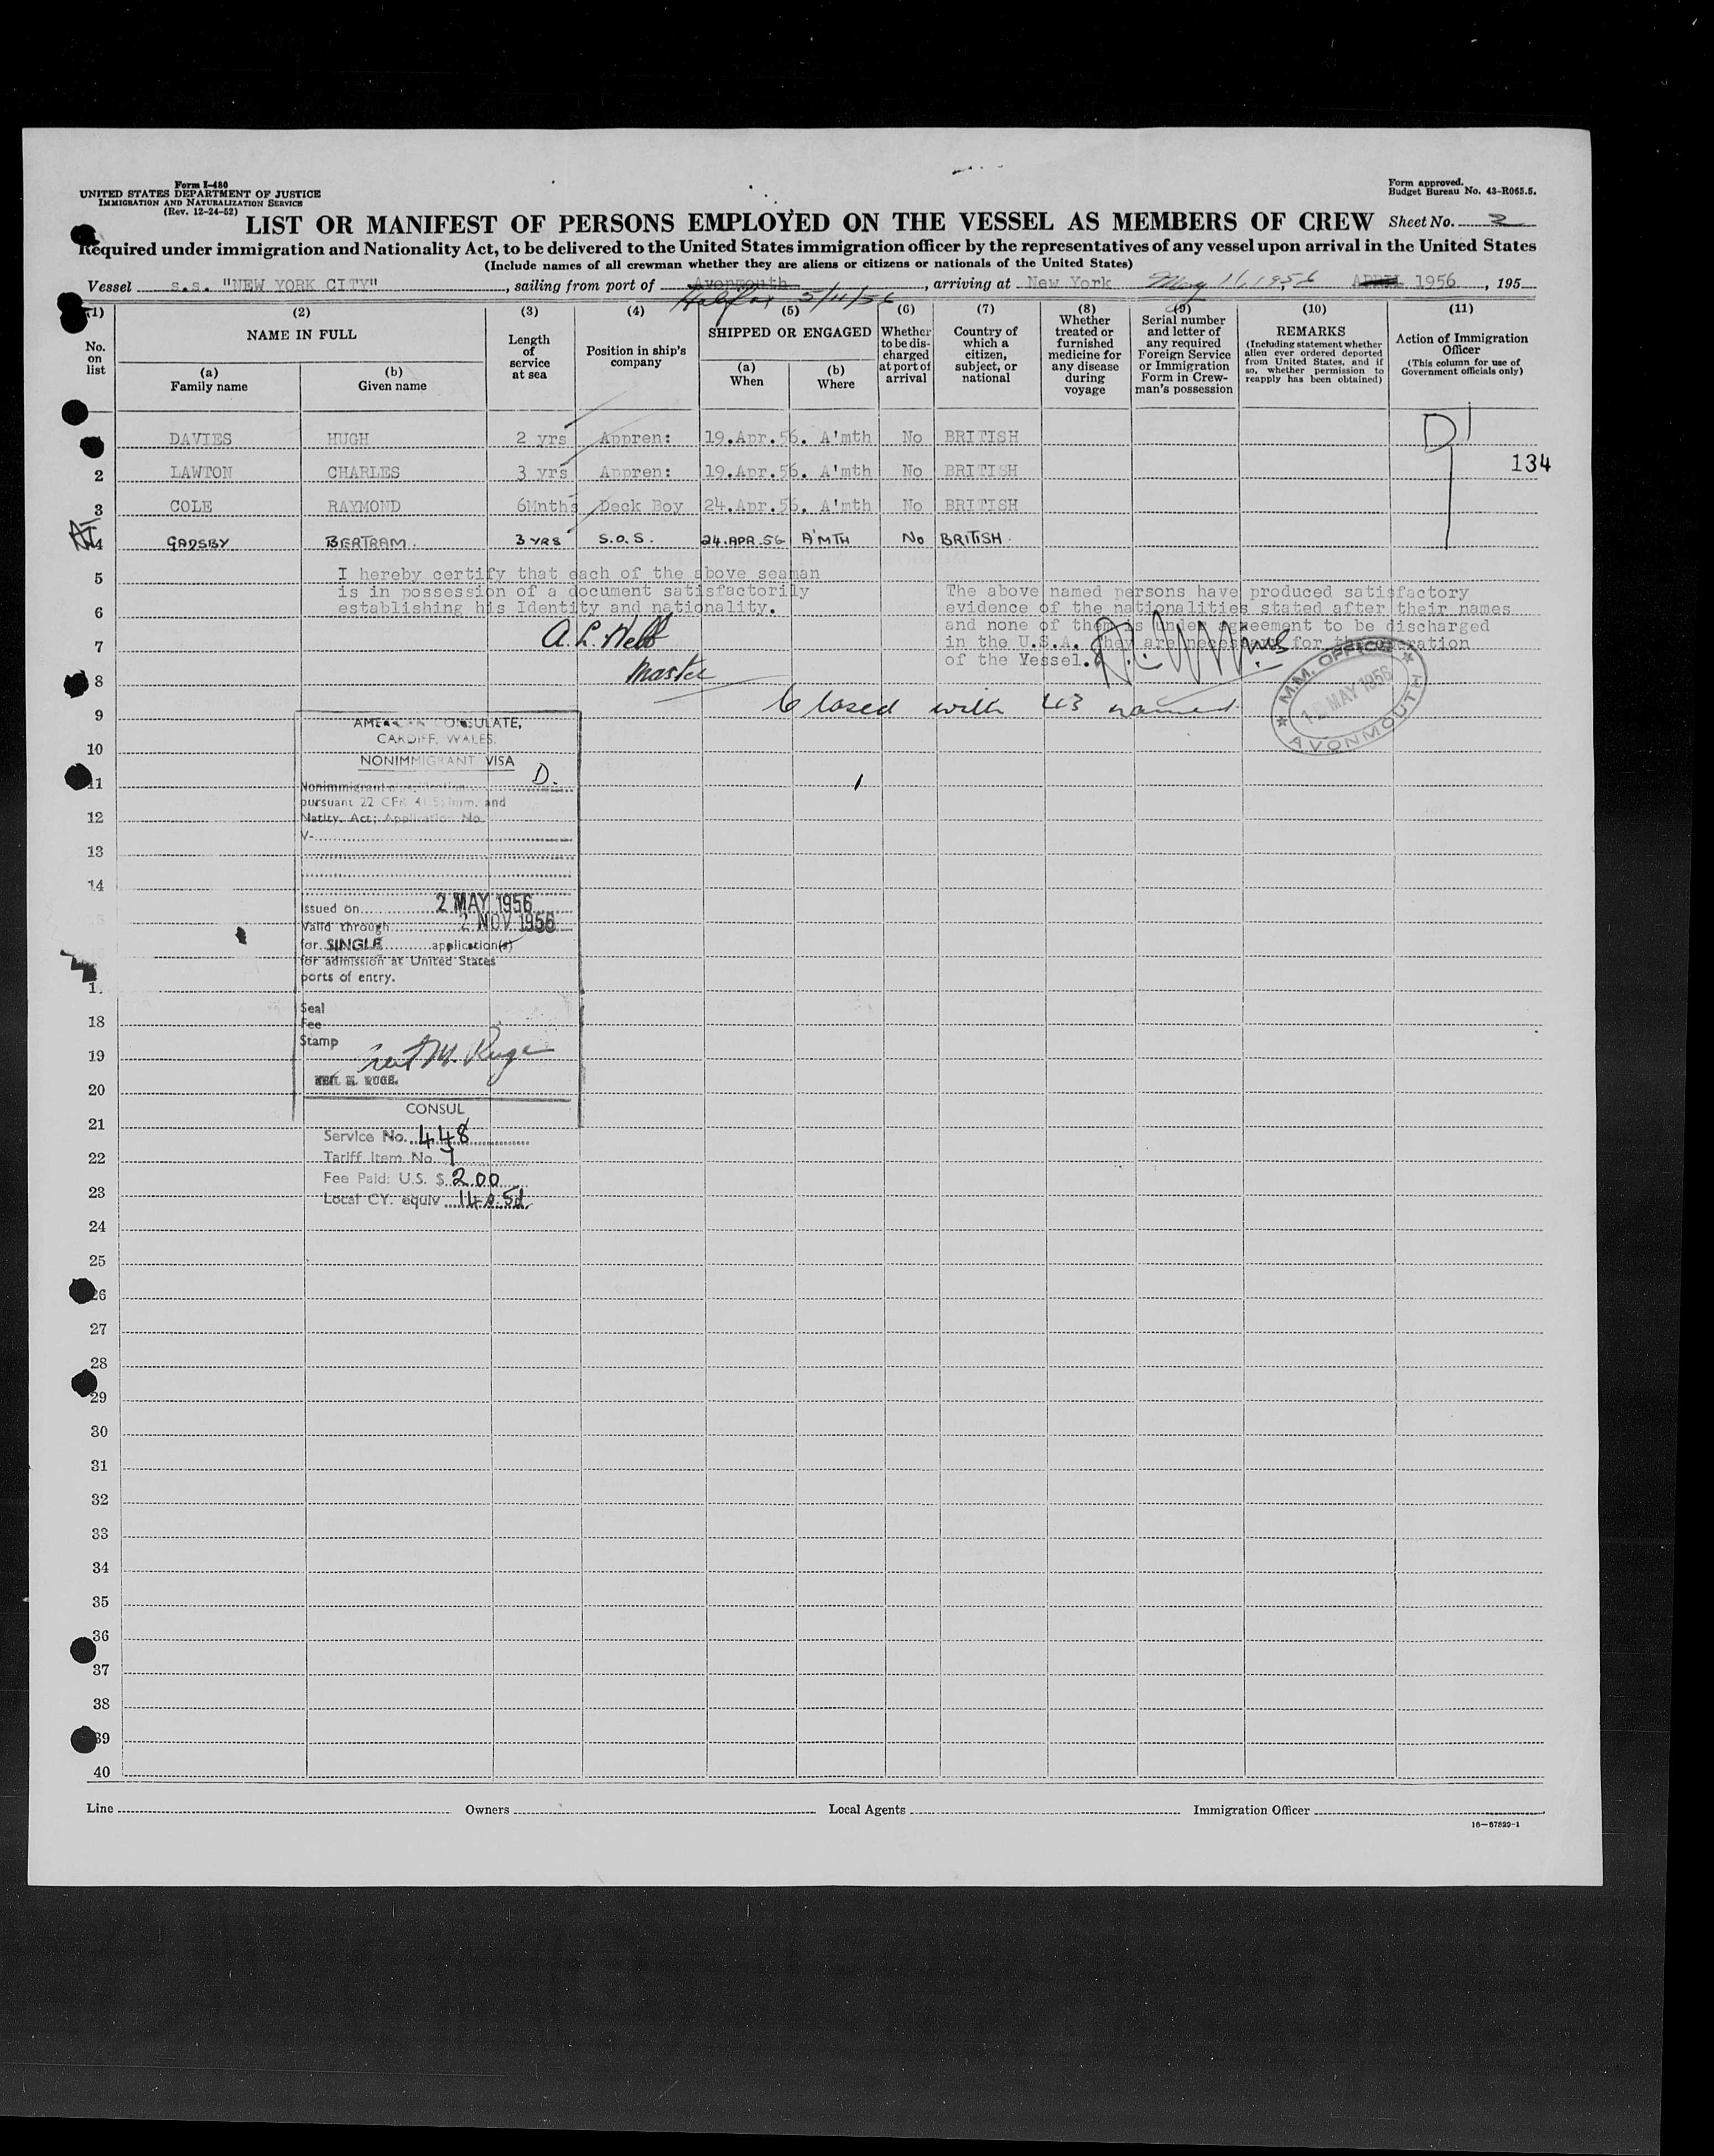 Form I-480
UNITED STATES DEPARTMENT OF JUSTICE
IMMIGRATION AND NATURALIZATION SERVICE
(Rev. 12-24-52)
Form approved.
Budget Bureau No. 43-R065.5.
LIST OR MANIFEST OF PERSONS EMPLOYED ON THE VESSEL AS MEMBERS OF CREW Sheet No. 2
Required under immigration and Nationality Act, to be delivered to the United States immigration officer by the representatives of any vessel upon arrival in the United States
(Include names of all crewman whether they are aliens or citizens or nationals of the United States)
Vessel s.s. "NEW YORK CITY", sailing from port of Avonmouth, arriving at New York May 11, 1956 APRIL 1956, 195
Halifax 5/11/56
(1) No. on list
(2) NAME IN FULL
(a) Family name
(b) Given name
(3) Length of service at sea
(4) Position in ship's company
(5) SHIPPED OR ENGAGED
(a) When
(b) Where
(6) Whether to be discharged at port of arrival
(7) Country of which a citizen, subject, or national
(8) Whether treated or furnished medicine for any disease during voyage
(9) Serial number and letter of any required Foreign Service or Immigration Form in Crewman's possession
(10) REMARKS (Including statement whether alien ever ordered deported from United States, and if so, whether permission to reapply has been obtained)
(11) Action of Immigration Officer (This column for use of Government officials only)
DAVIES HUGH 2 yrs Appren: 19.Apr.56. A'mth No BRITISH D1
134
2 LAWTON CHARLES 3 yrs Appren: 19.Apr.56. A'mth No BRITISH
3 COLE RAYMOND 6Mnths Deck Boy 24.Apr.56. A'mth No BRITISH
4 GADSBY BERTRAM. 3 YRS S.O.S. 24.APR.56 A'MTH No BRITISH.
5
I hereby certify that each of the above seaman
is in possession of a document satisfactorily
establishing his Identity and nationality.
A. L. Webb
Master
The above named persons have produced satisfactory
evidence of the nationalities stated after their names
and none of them is under agreement to be discharged
in the U.S.A. They are necessary for the operation
of the Vessel.
M.M. OFFICE
MAY 1956
AVONMOUTH
6
7
8
9
Closed with 43 names
10
11
12
13
14
AMERICAN CONSULATE,
CARDIFF, WALES.
NONIMMIGRANT VISA
D.
Nonimmigrant classification
pursuant 22 CFR 41.5; Imm. and
Natlty. Act; Application No.
V-
Issued on 2 MAY 1956
Valid through 2 NOV 1956
for SINGLE application(s)
for admission at United States
ports of entry.
Seal
Fee
Stamp
NEIL M. RUGE.
CONSUL
Service No. 448
Tariff Item No. 7
Fee Paid: U.S. $ 2.00
Local CY. equiv 14s.5d.
18
19
20
21
22
23
24
25
26
27
28
29
30
31
32
33
34
35
36
37
38
39
40
Line Owners Local Agents Immigration Officer
16—67829-1